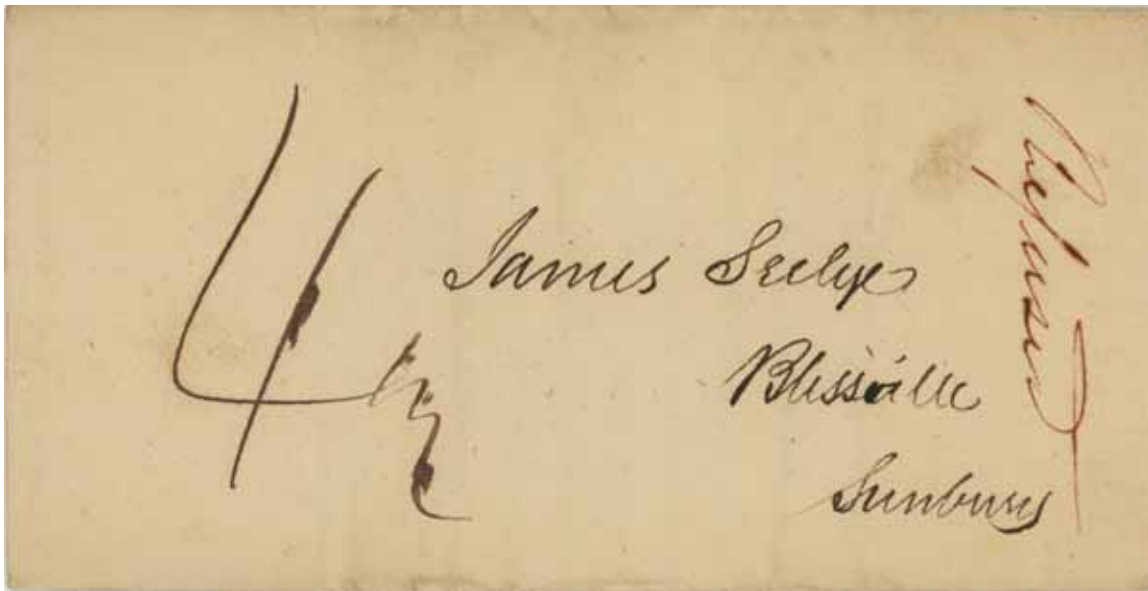 4½
James Seelye
Blissville
Sunbury
Refused